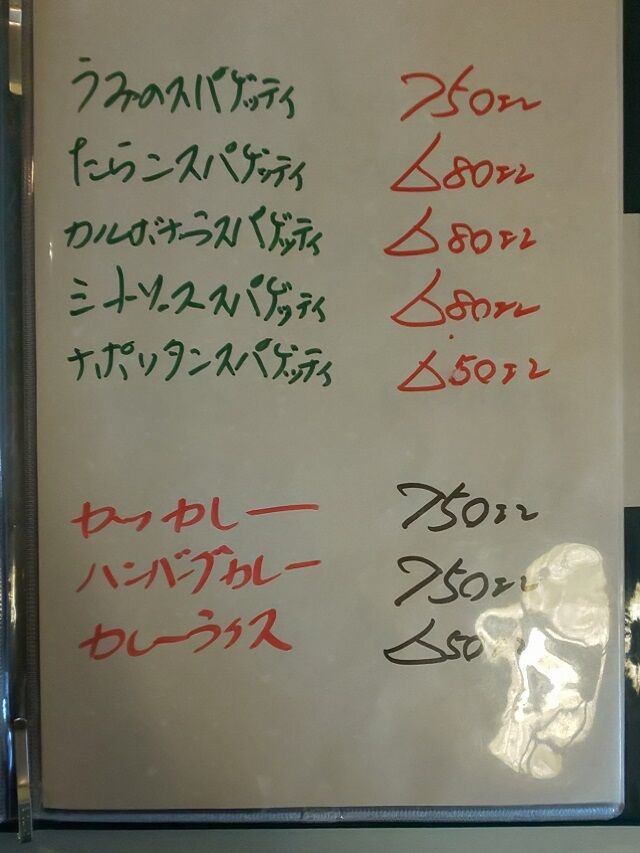 うみのスパゲッティ 750エン
たらこスパゲッティ 680エン
カルボナーラスパゲッティ 680エン
ミートソーススパゲッティ 680エン
ナポリタンスパゲッティ 650エン
カツカレー 750エン
ハンバーグカレー 750エン
カレーライス 650